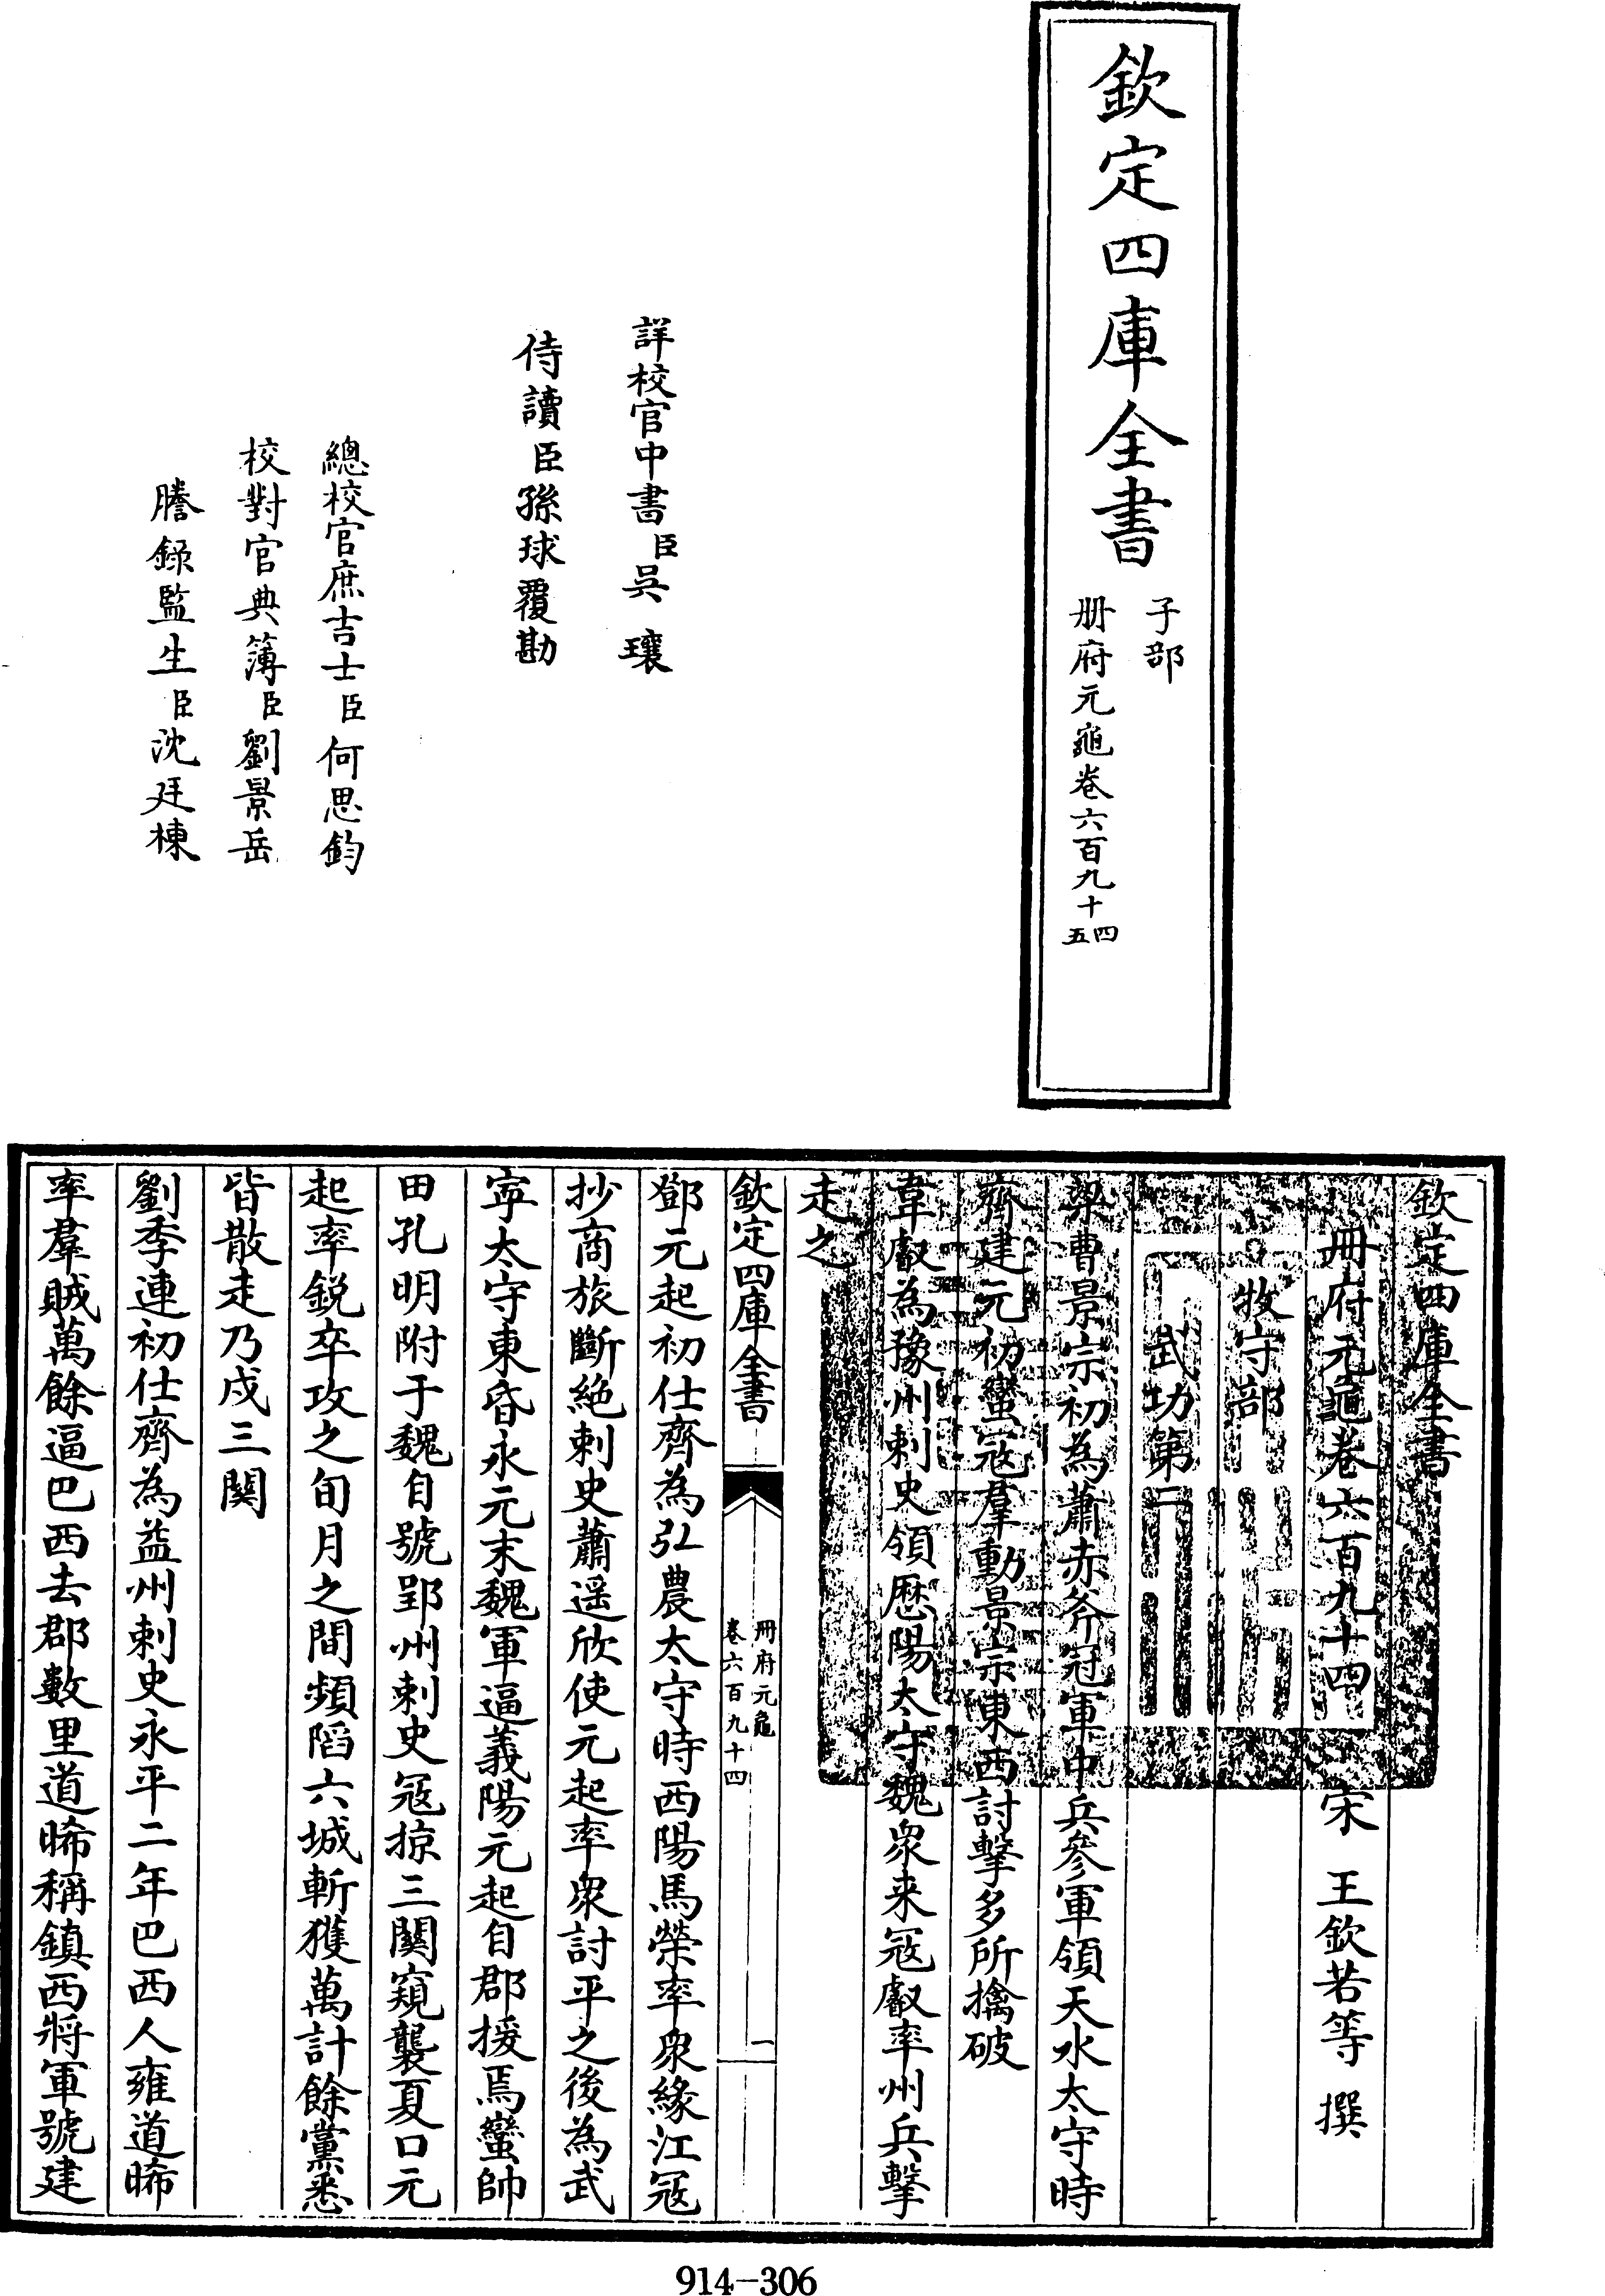 欽定四庫全書
子部
册府元龜卷六百九十四
五
詳校官中書臣吳瓖
侍讀臣孫球覆勘
總校官庶吉士臣何思鈞
校對官典簿臣劉景岳
謄錄監生臣沈廷棟
欽定四庫全書
冊府元龜卷六百九十四
宋 王欽若等 撰
牧守部
武功第二
梁曹景宗初為蕭赤斧冠軍中兵參軍領天水太守時
齊建元初蠻冦羣動景宗東西討擊多所擒破
韋叡為豫州刺史領歷陽太守魏衆来冦叡率州兵擊
走之
欽定四庫全書
冊府元龜
卷六百九十四
一
鄧元起初仕齊為弘農太守時西陽馬榮率衆緣江冦
抄商旅斷絶刺史蕭遥欣使元起率衆討平之後為武
寧太守東昏永元末魏軍逼義陽元起自郡援焉蠻帥
田孔明附于魏自號郢州刺史冦掠三關窺襲夏口元
起率銳卒攻之旬月之間頻䧟六城斬獲萬計餘黨悉
皆散走乃戍三關
劉季連初仕齊為益州刺史永平二年巴西人雍道晞
率羣賊萬餘逼巴西去郡數里道晞稱鎮西將軍號建
914-306